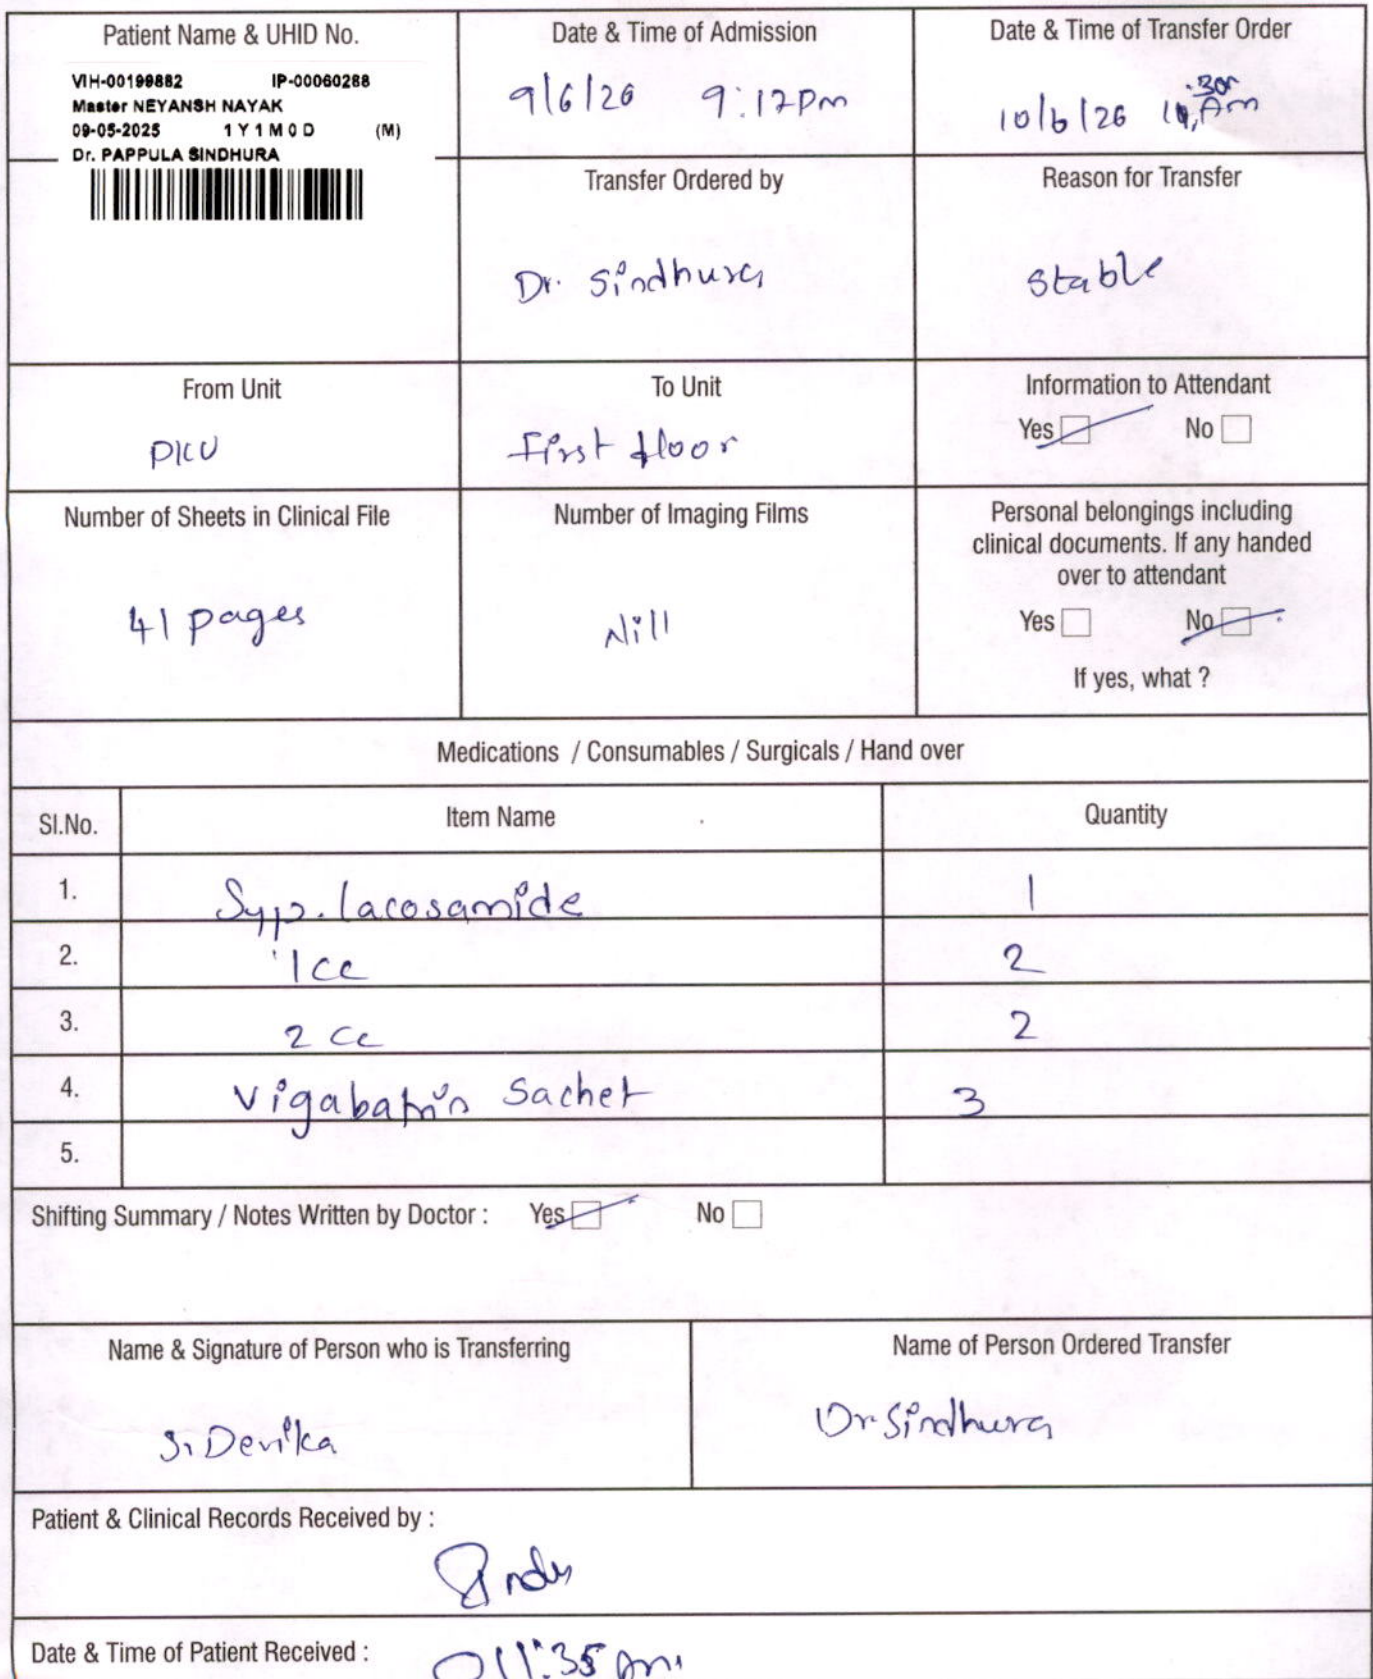 Patient Name & UHID No.
VIH-00199882 IP-00060288
Master NEYANSH NAYAK
09-05-2025 1 Y 1 M 0 D (M)
Dr. PAPPULA SINDHURA
Date & Time of Admission
9/6/26 9:17pm
Date & Time of Transfer Order
10/6/26 :30 Am
Transfer Ordered by
Dr. Sindhura
Reason for Transfer
Stable
From Unit
PICU
To Unit
First floor
Information to Attendant
Yes No
Number of Sheets in Clinical File
41 pages
Number of Imaging Films
Nill
Personal belongings including
clinical documents. If any handed
over to attendant
Yes No
If yes, what ?
Medications / Consumables / Surgicals / Hand over
Sl.No. Item Name Quantity
1. Syp. lacosamide 1
2. 1cc 2
3. 2 cc 2
4. Vigabatrin Sachet 3
5.
Shifting Summary / Notes Written by Doctor : Yes No
Name & Signature of Person who is Transferring
S. Devika
Name of Person Ordered Transfer
Dr Sindhura
Patient & Clinical Records Received by :
Date & Time of Patient Received :
11:35 Am